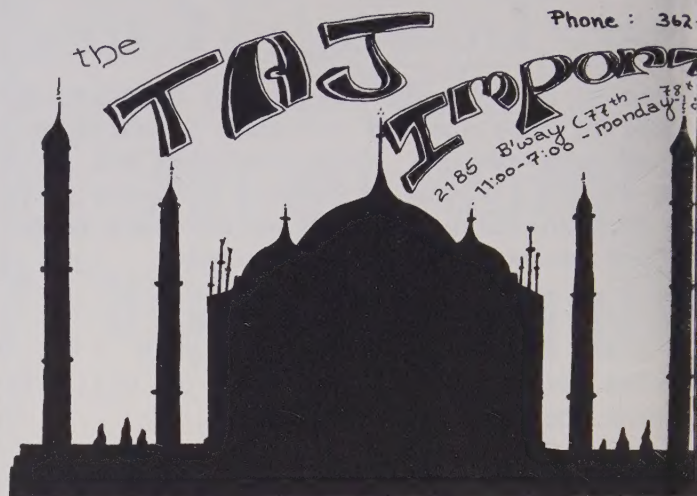 Phone : 362
the
TAJ
Impor
2185 B'way (77th – 78t
11:00-7:00 - Monday-